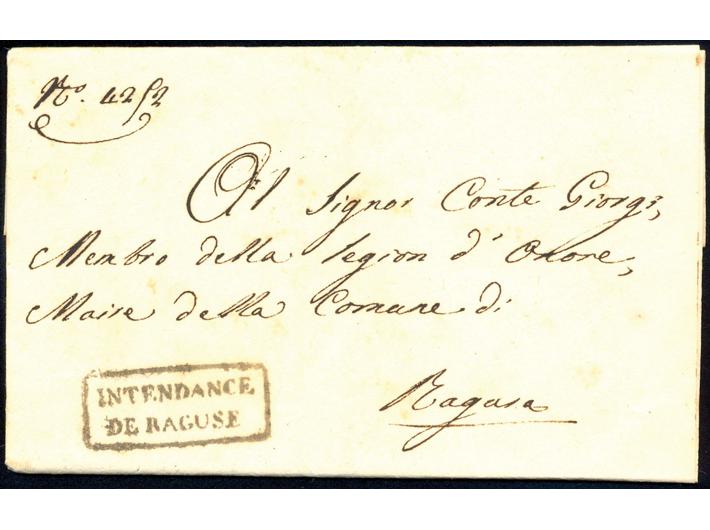 No. 4252
Al Signor Conte Giorgi,
Membro della legion d'Onore,
Maire della Comune di
Ragusa
INTENDANCE
DE RAGUSE